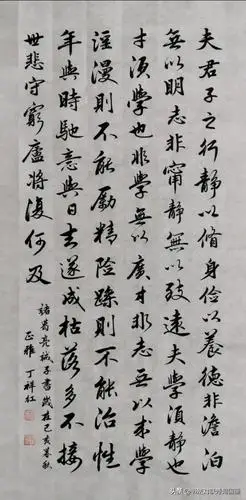 夫君子之行靜以脩身儉以養德非澹泊
無以明志非甯靜無以致遠夫學須靜也
才須學也非學無以廣才非志無以求學
淫漫則不能勵精險躁則不能治性
年與時馳意與日去遂成枯落多不接
世悲守窮廬將復何及
諸葛亮誡子書歲在己亥暮秋
正雅 丁祥红